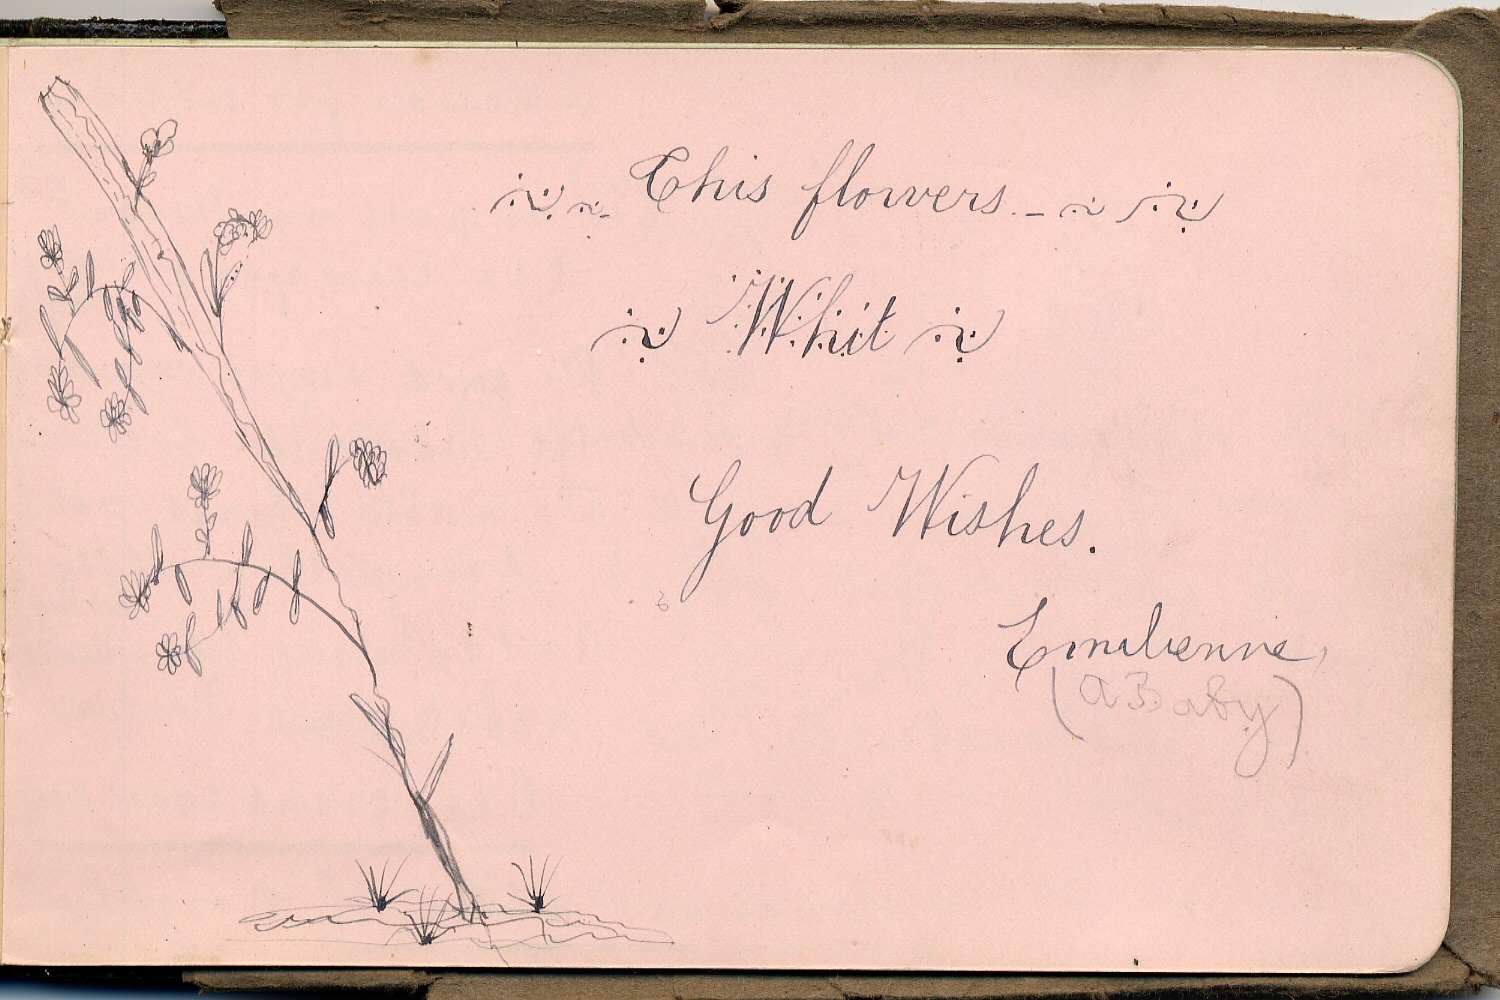 This flowers
Whit
Good Wishes.
Emilienne,
(a Baby)